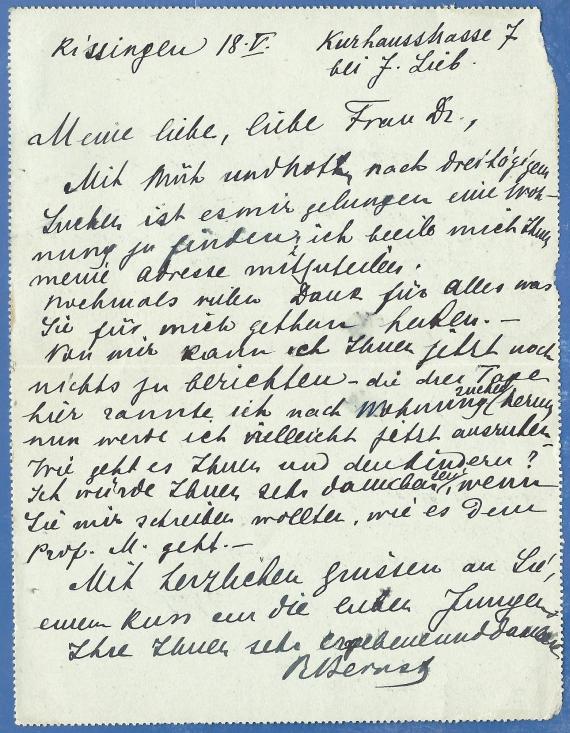 Kissingen 18.V. Kurhausstrasse 7
bei J. Lieb.
Meine liebe, liebe Frau Dr.,
Mit Müh und Noth, nach dreitägigem
Suchen ist es mir gelungen eine Woh-
nung zu finden, ich beeile mich Ihnen
meine Adresse mitzuteilen.
Nochmals vielen Dank für Alles was
Sie für mich gethan haben. —
Von mir kann ich Ihnen jetzt noch
nichts zu berichten - die drei Tage
hier rannte ich nach Wohnung suchen herum
nun werde ich vielleicht jetzt ausruhen
Wie geht es Ihnen und den Kindern?
Ich würde Ihnen sehr dankbar sein, wenn
Sie mir schreiben wollten, wie es dem
Prof. M. geht. —
Mit herzlichen grüssen an Sie,
einem Kuss an die lieben Jungen
Ihre Ihnen sehr ergebene und